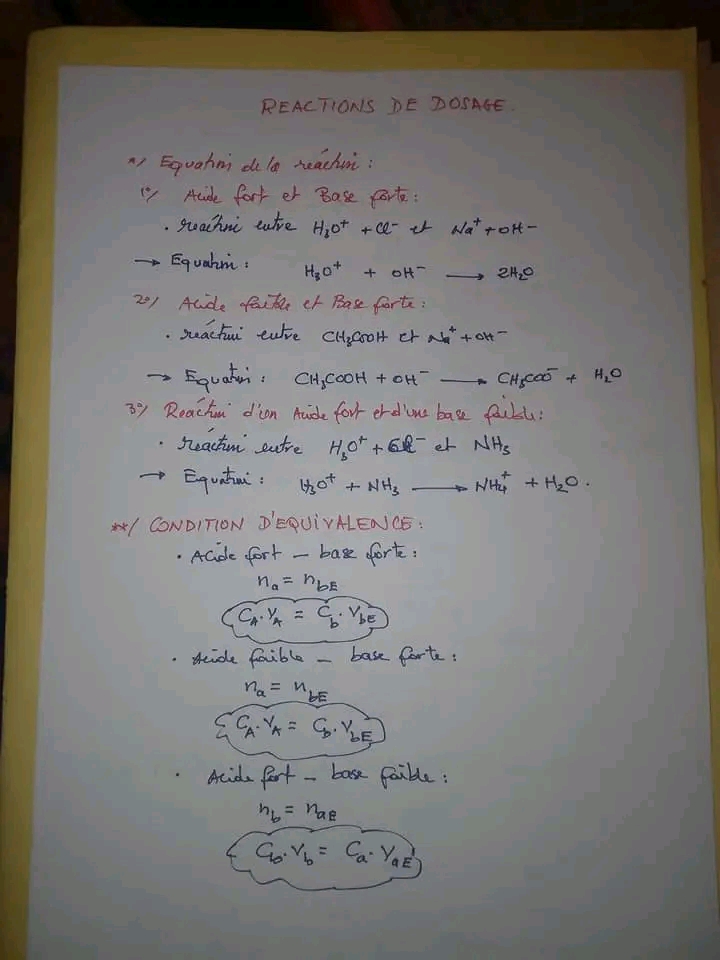 REACTIONS DE DOSAGE.
*/ Equation de la réaction :
1°/ Acide fort et Base forte :
. réaction entre H₃O⁺ + Cl⁻ et Na⁺ + OH⁻
→ Equation : H₃O⁺ + OH⁻ → 2H₂O
2°/ Acide faible et Base forte :
. réaction entre CH₃COOH et Na⁺ + OH⁻
→ Equation : CH₃COOH + OH⁻ → CH₃COO⁻ + H₂O
3°/ Réaction d'un Acide fort et d'une base faible :
. réaction entre H₃O⁺ + Cl⁻ et NH₃
→ Equation : H₃O⁺ + NH₃ → NH₄⁺ + H₂O.
**/ CONDITION D'EQUIVALENCE :
. Acide fort – base forte :
nₐ = n_bE
C_A.V_A = C_b.V_bE
. Acide faible – base forte :
nₐ = n_bE
C_A.V_A = C_b.V_bE
. Acide fort – base faible :
n_b = n_aE
C_b.V_b = C_a.V_aE